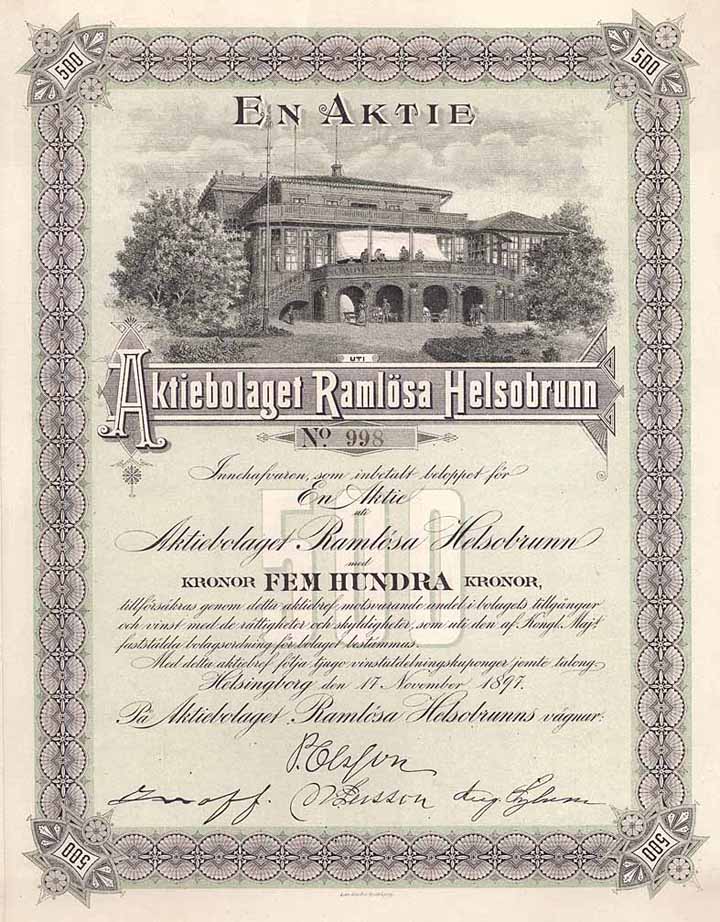 500 500
EN AKTIE
UTI
Aktiebolaget Ramlösa Helsobrunn
No. 998
Innehafvaren, som inbetalt beloppet för
En Aktie
uti
Aktiebolaget Ramlösa Helsobrunn
med
KRONOR FEM HUNDRA KRONOR,
500
tillförsäkras genom detta aktiebref motsvarande andel i bolagets tillgångar
och vinst med de rättigheter och skyldigheter, som uti den af Kongl. Maj:t
fastställda bolagsordning för bolaget bestämmas.
Med detta aktiebref följa tjugo vinstutdelningskuponger jemte talong.
Helsingborg den 17 November 1897.
På Aktiebolaget Ramlösa Helsobrunns vägnar:
P. Olsson
N. Persson Aug.
500 500